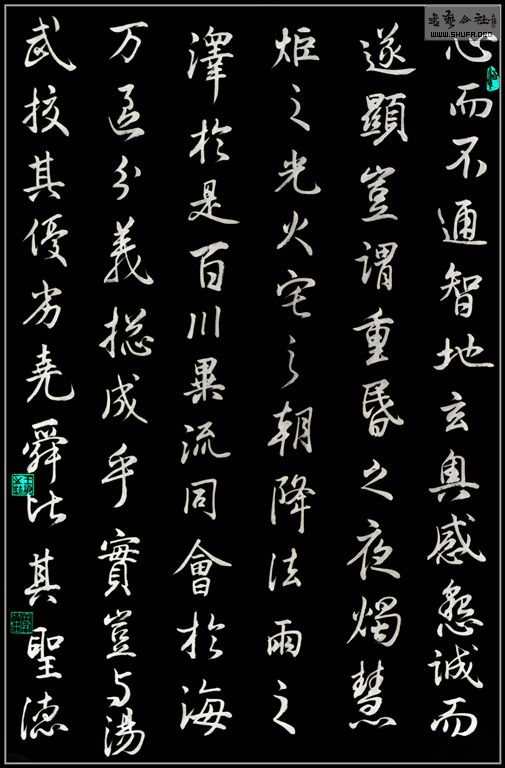 心而不通智地玄奧感懇誠而
遂顯豈謂重昬之夜燭慧
炬之光火宅之朝降法雨之
澤於是百川異流同會於海
万區分義摠成乎實豈与湯
武挍其優劣堯舜比其聖德
書藝公社
WWW.SHUFA.ORG